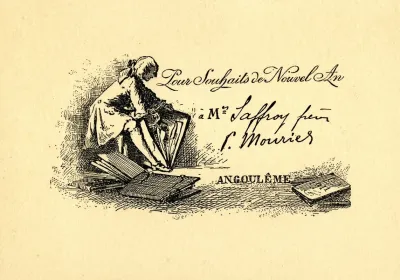 Pour Souhaits de Nouvel An
à Mr Saffroy frères
P. Mouriès
ANGOULÊME